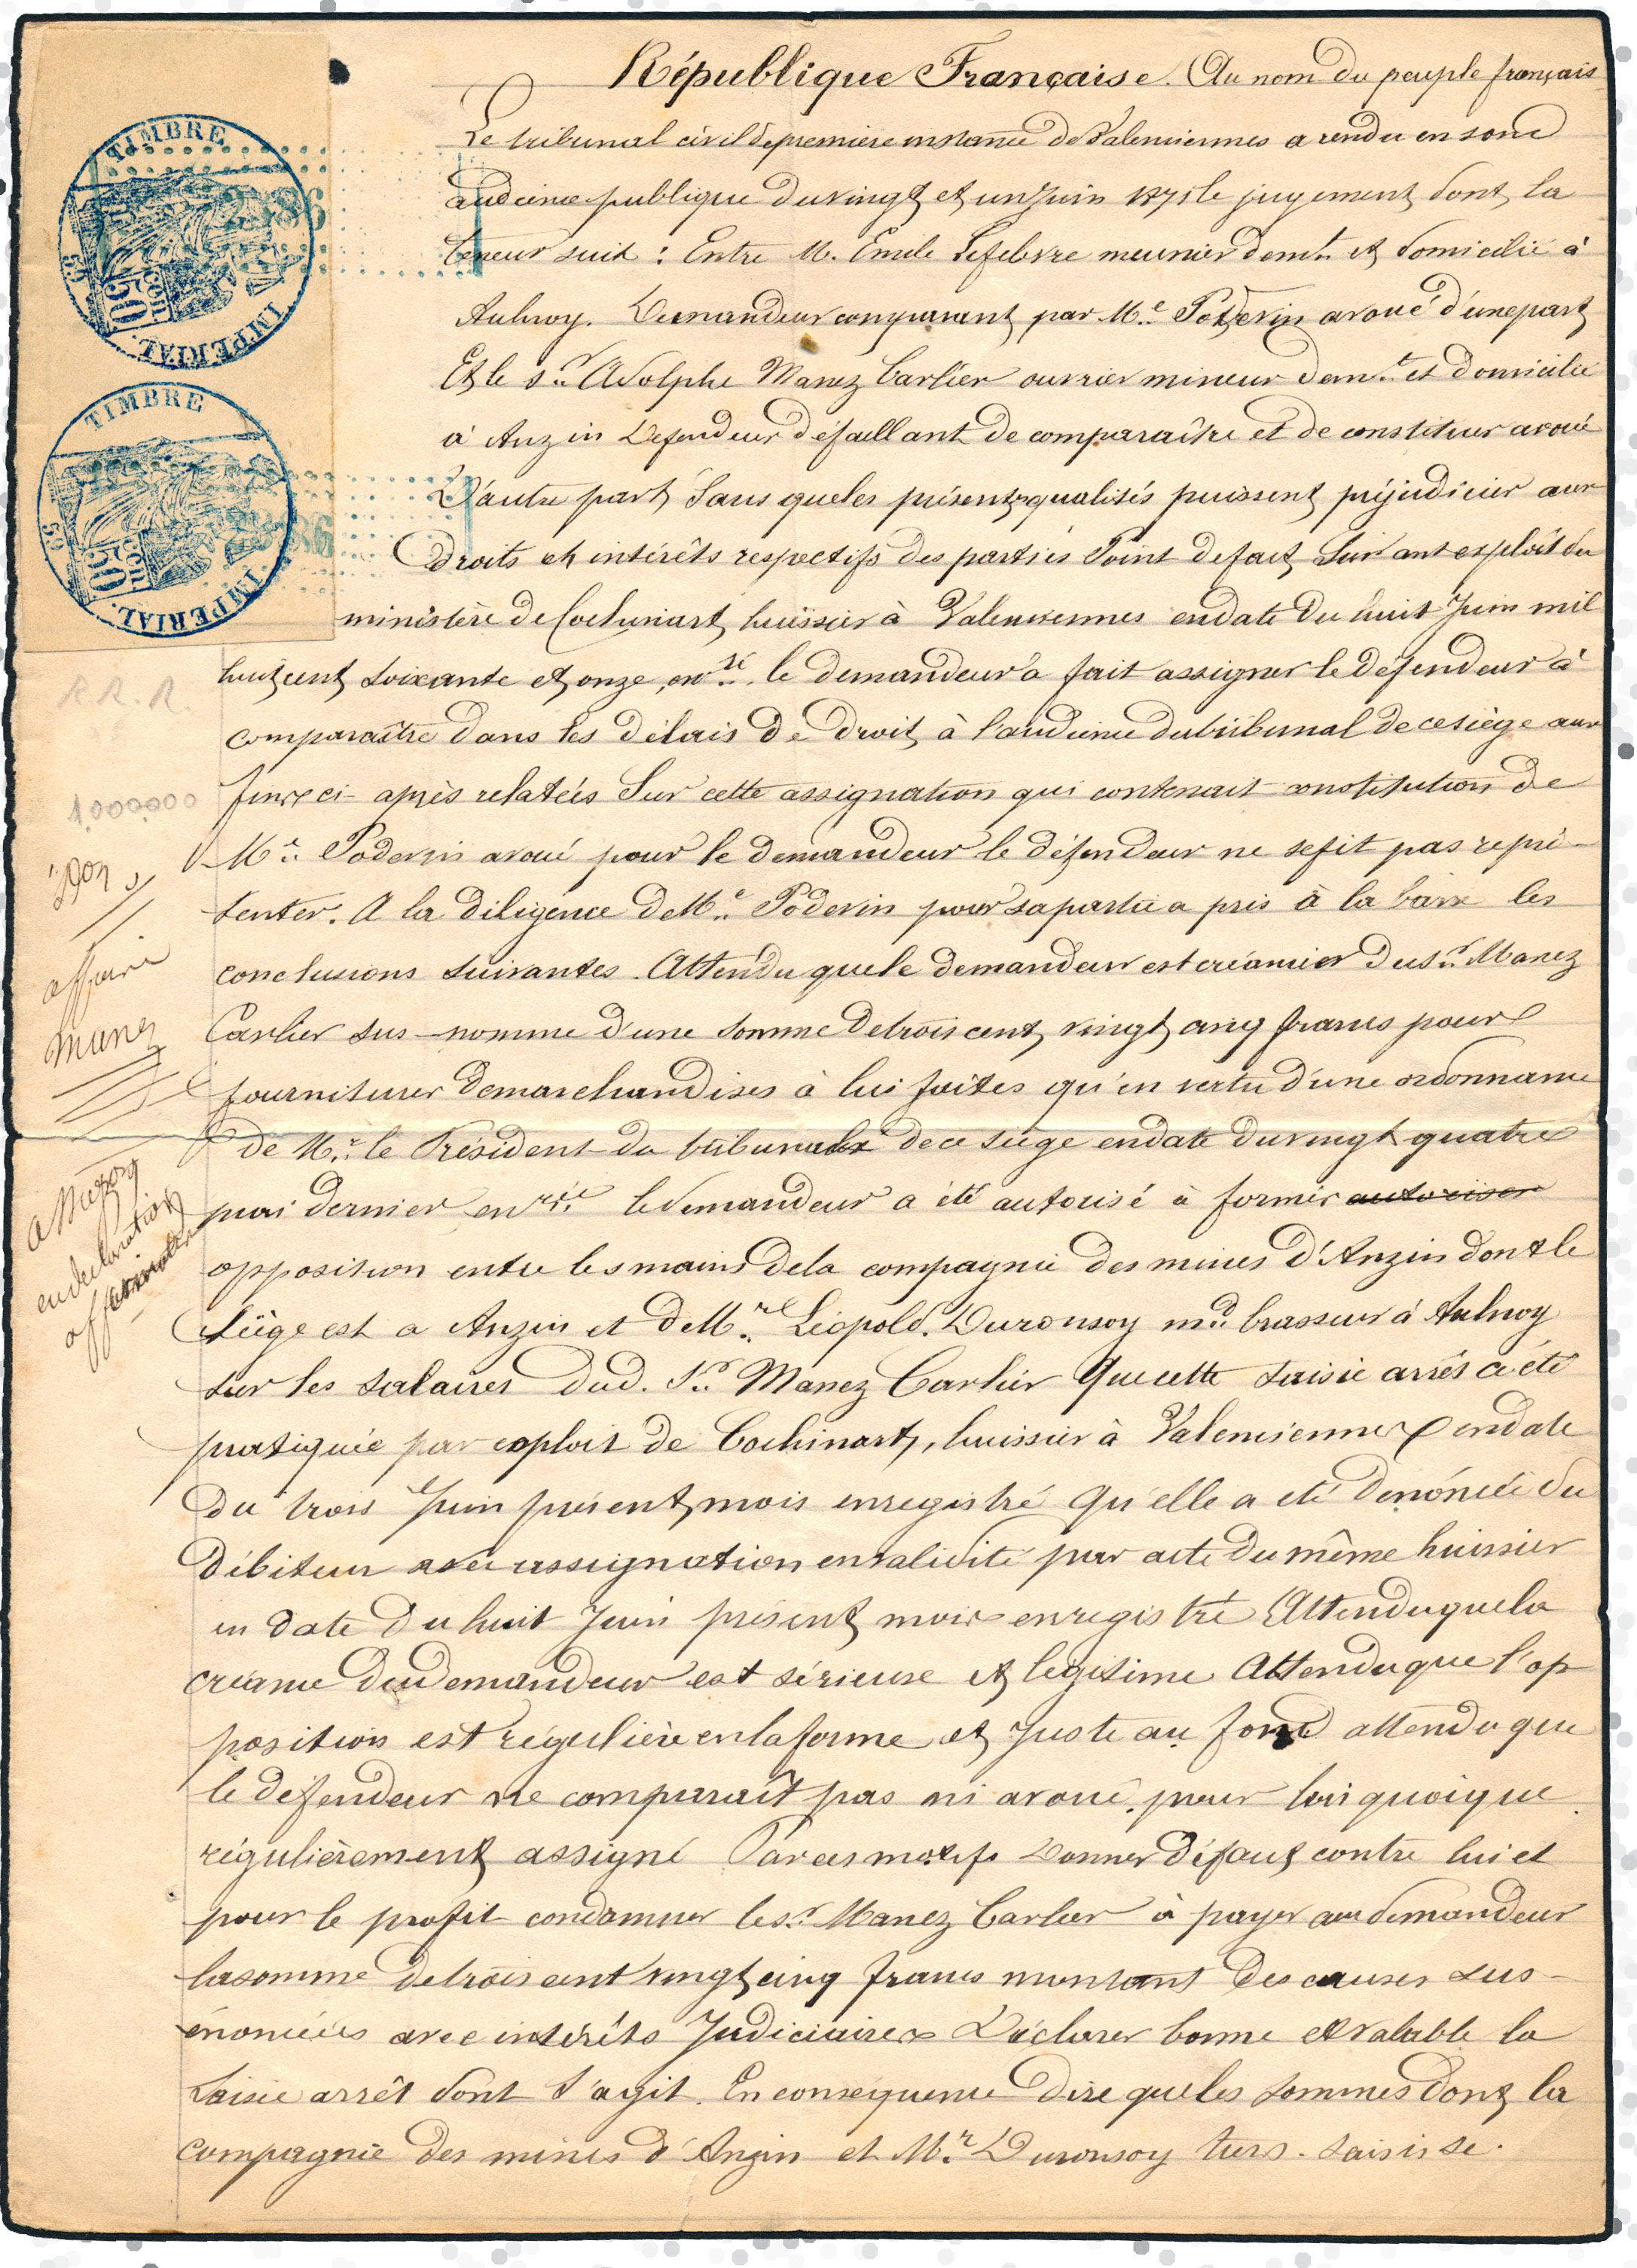 République Française. Au nom du peuple français
Le tribunal civil de premiere instance de Valenciennes a rendu en son
audience publique du vingt et un Juin 1871 le jugement dont la
teneur suit : Entre M. Emile Lefebvre meunier demt. et domicilié à
Aulnoy. Demandeur comparant par M.e Poderin avoué d'une part
Et le s.r Adolphe Manez Carlier ouvrier mineur dem.t et domicilié
à Anzin Défendeur défaillant de comparaître et de constituer avoué
D'autre part Sans que les présentes qualités puissent préjudicier aux
droits et intérêts respectifs des parties Point de fait Suivant exploit du
ministère de Cochinart, huissier à Valenciennes en date du huit Juin mil
huit cent soixante et onze, en.ré le demandeur a fait assigner le défendeur à
comparaître dans les délais de droit, à l'audience du tribunal de ce siège aux
fins ci-après relatées Sur cette assignation qui contenait constitution de
M.e Poderin avoué pour le demandeur le défendeur ne se fit pas repré-
senter. A la diligence de M.e Poderin pour sa partie a pris à la barre les
conclusions suivantes. Attendu que le demandeur est créancier du s.r Manez
Carlier sus-nommé d'une somme de trois cent vingt cinq francs pour
fournitures de marchandises à lui faites qu'en vertu d'une ordonnance
de M.r le Président du tribunal de ce siège en date du vingt quatre
mai dernier en.rée le demandeur a été autorisé à former autoriser
opposition entre les mains de la compagnie des mines d'Anzin dont le
Siège est a Anzin et de M.r Léopold. Duronsoy m.d brasseur à Aulnoy
sur les salaires dud. S.r Manez Carlier Que cette saisie arrêt a été
pratiquée par exploit de Cochinart, huissier à Valenciennes en date
du trois Juin présent mois enregistré Qu'elle a été dénoncée du
débiteur avec assignation en validité par acte du même huissier
en date du huit Juin présent mois enregistré Attendu que la
créance du demandeur est sérieuse et légitime Attendu que l'op
position est régulière en la forme et Juste au fond attendu que
le défendeur ne comparait pas ni avoué pour lui quoique
régulièrement assigné Par ces motifs Donner défaut contre lui et
pour le profit condamner le s.r Manez Carlier à payer au demandeur
la somme de trois cent vingt cinq francs montant des causes sus-
énoncées avec intérêts Judiciaires Déclarer bonne et valable la
Saisie arrêt dont s'agit. En conséquence dire que les sommes dont la
compagnie des mines d'Anzin et M.r Duronsoy tiers-saisis se.
TIMBRE IMPERIAL.
50
TIMBRE IMPERIAL.
50
R.R.R.
1.000.000
affaire
Manez
en déclaration
affirmative